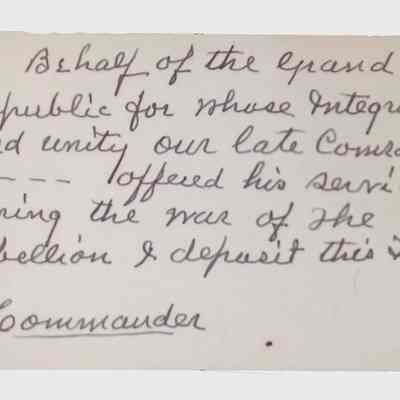 Behalf of the Grand
public for whose Integr
d unity our late Comra
--- offered his servi
ring the war of the
bellion I deposit this
Commander